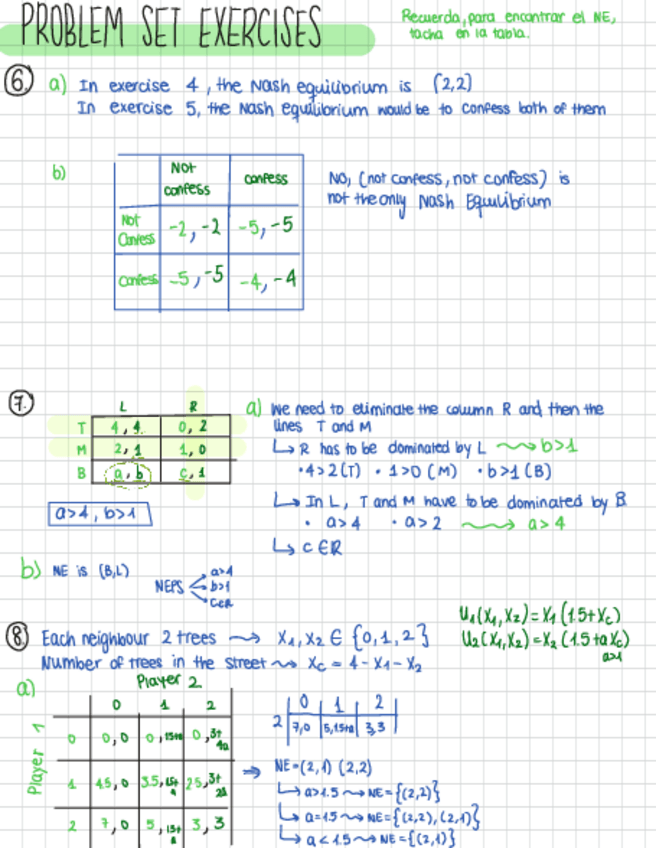 PROBLEM SET EXERCISES
Recuerda, para encontrar el NE,
tacha en la tabla.
6. a) In exercise 4, the Nash equilibrium is (2,2)
In exercise 5, the Nash Equilibrium would be to confess both of them
b)
Not confess | confess
Not Confess | -2, -2 | -5, -5
Confess | -5, -5 | -4, -4
No, (not confess, not confess) is
not the only Nash Equilibrium
7.
L R
T 4, 4 0, 2
M 2, 1 1, 0
B a, b c, 1
a>4, b>1
a) We need to eliminate the column R and then the
lines T and M
↳ R has to be dominated by L ⟿ b>1
· 4>2 (T) · 1>0 (M) · b>1 (B)
↳ In L, T and M have to be dominated by B
· a>4 · a>2 ⟿ a>4
↳ c ∈ R
b) NE is (B,L)
NEPS a>4
b>1
c∈R
8. Each neighbour 2 trees ⟿ X1, X2 ∈ {0, 1, 2}
Number of trees in the street ⟿ Xc = 4 - X1 - X2
U1(X1, X2) = X1 (1.5+Xc)
U2(X1, X2) = X2 (1.5+aXc)
a)
Player 2
Player 1
0 1 2
0 0, 0 0, 0, 3+4a
1 4.5, 0 3.5, 2.5, 3+2a
2 7, 0 5, 3, 3
0 1 2
2 7,0 5, 1.5+a 3,3
⇒ NE=(2,1) (2,2)
↳ a>1.5 ⟿ NE={(2,2)}
↳ a=1.5 ⟿ NE={(2,2),(2,1)}
↳ a<1.5 ⟿ NE={(2,1)}